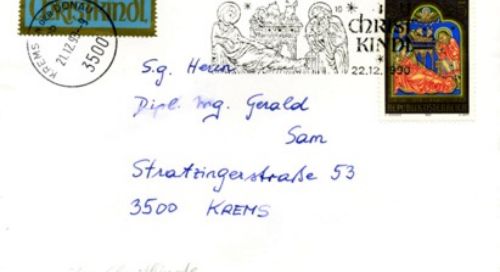 Christkindl
KREMS a.d. DONAU
21.12.9
3500
CHRIST
KINDL
22.12.1990
REPUBLIK ÖSTERREICH
S.g. Herrn
Dipl. Ing. Gerald
Sam
Stratzingerstraße 53
3500 KREMS